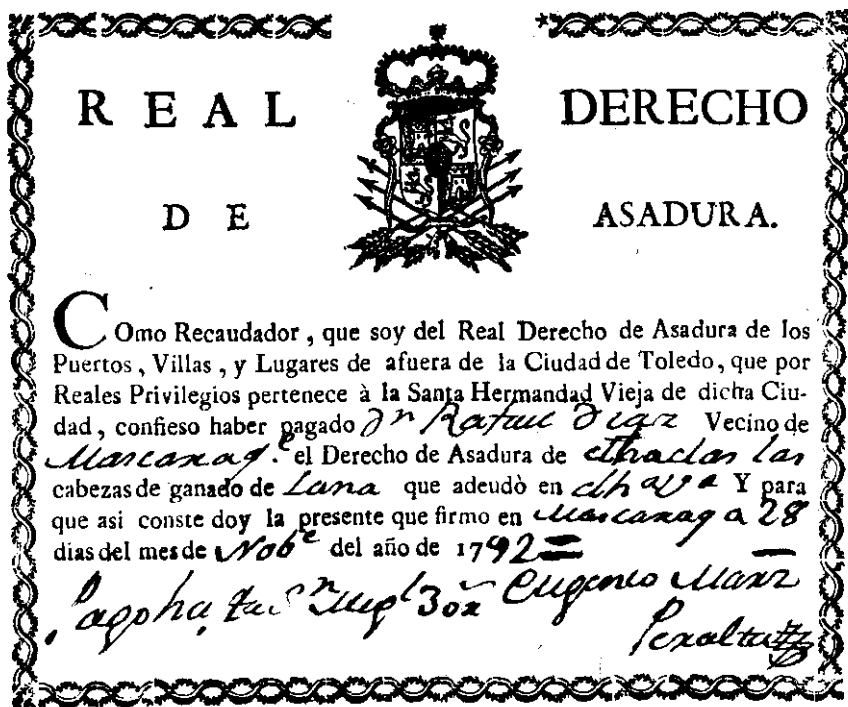 REAL DERECHO
DE ASADURA.
COmo Recaudador, que soy del Real Derecho de Asadura de los
Puertos, Villas, y Lugares de afuera de la Ciudad de Toledo, que por
Reales Privilegios pertenece à la Santa Hermandad Vieja de dicha Ciu-
dad, confieso haber pagado Dn Rafael Diaz Vecino de
el Derecho de Asadura de las
cabezas de ganado de Lana que adeudò en Y para
que asi conste doy la presente que firmo en a 28
dias del mes de Nobe del año de 1792
Eugenio
Peralta